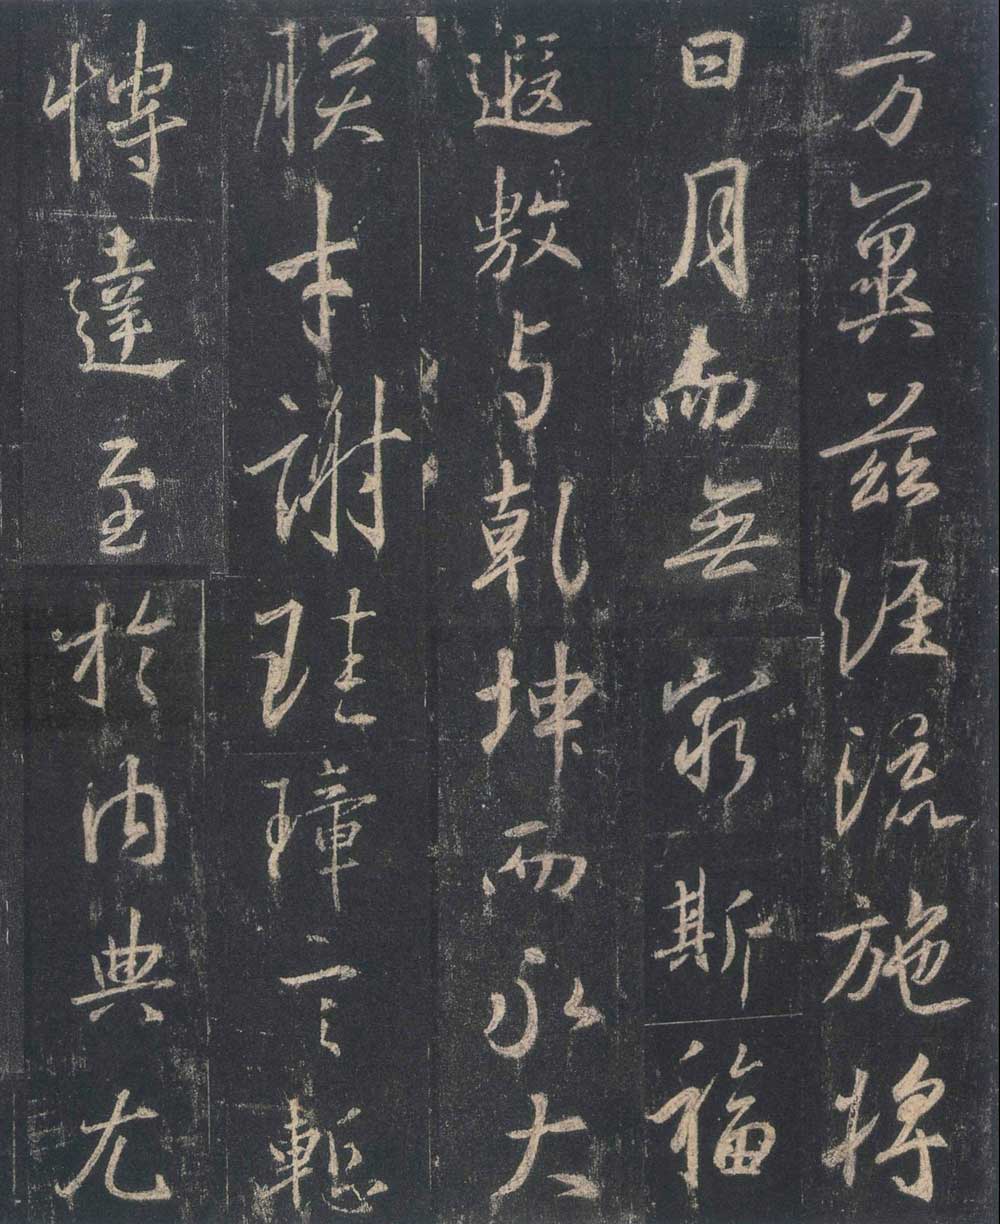 方冀茲經流施將
日月而無窮斯福
遐敷与乾坤而永大
朕才謝珪璋言慙
博達至於內典尤